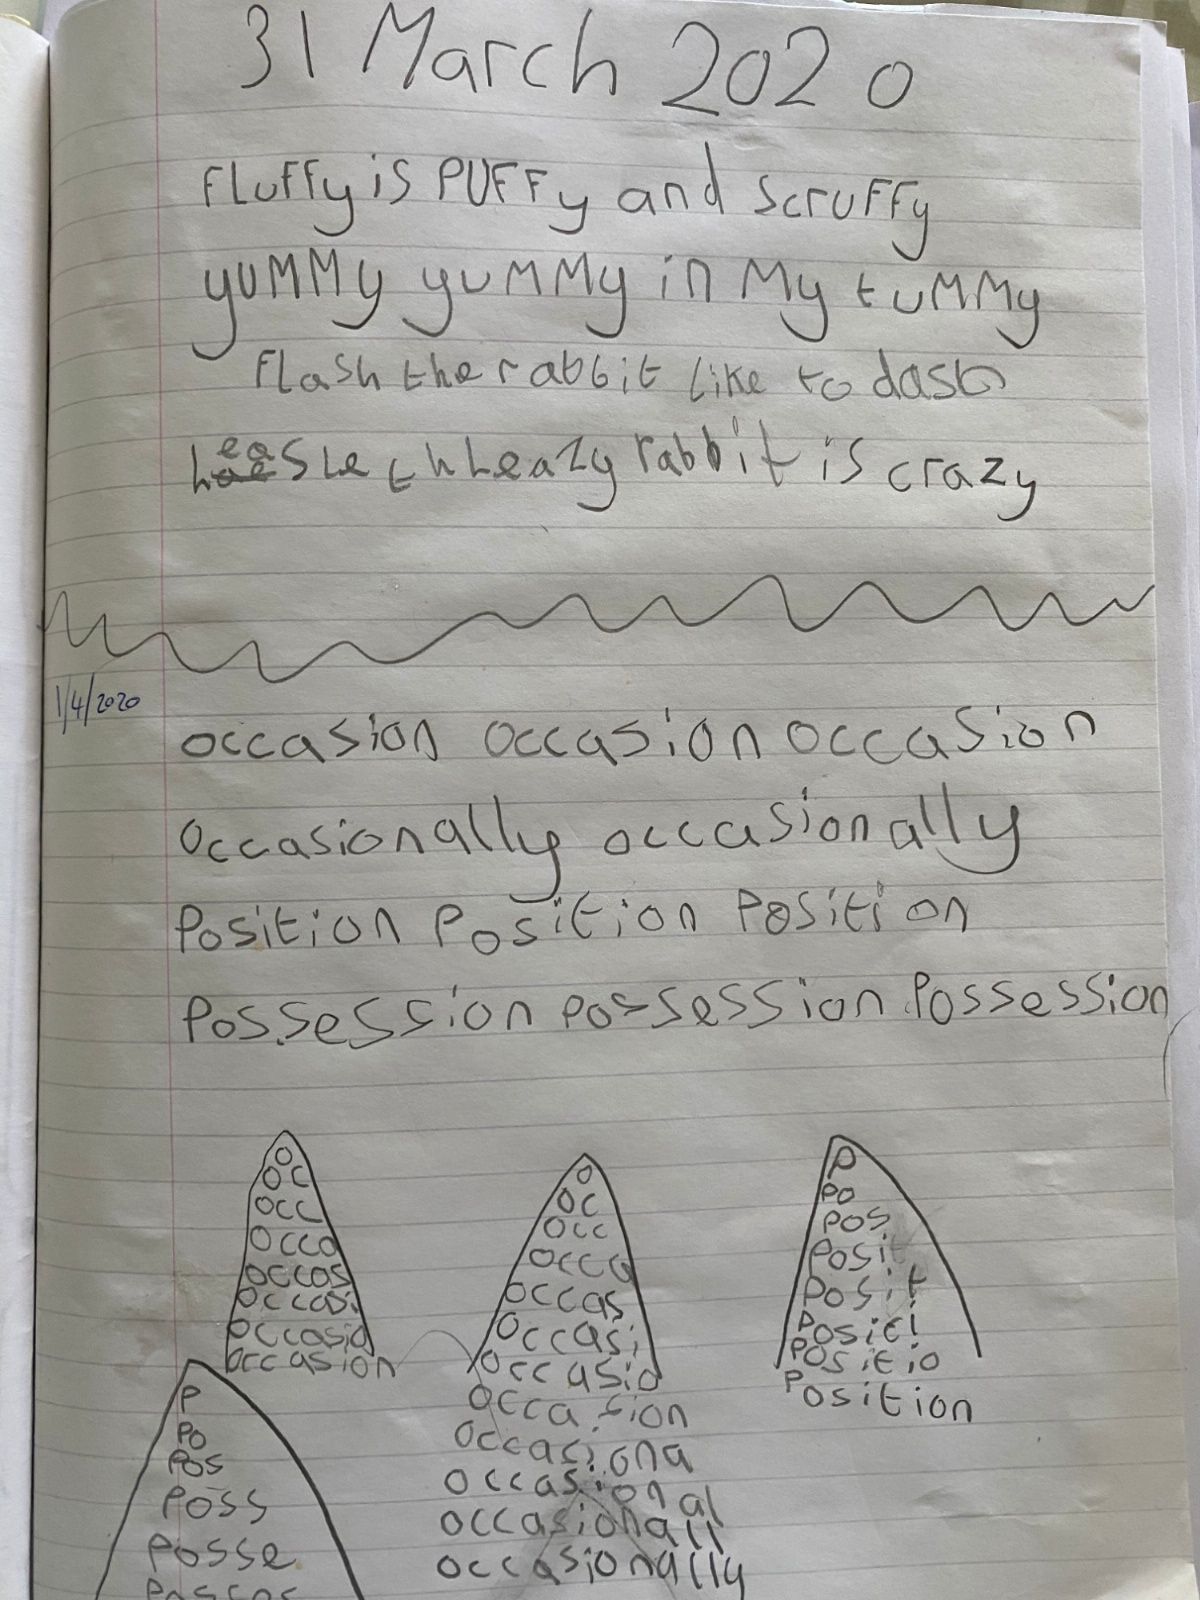 31 March 2020
Fluffy is PUFFy and scruffy
yuMMy yuMMy in My tuMMy
Flash the rabbit like to dash
is crazy rabbit
1/4/2020
occasion occasion occasion
occasionally occasionally
Position Position Position
Possession possession Possession
o
oc
occ
occa
occas
occasi
occasio
occasion
o
oc
occ
occa
occas
occasi
occasio
occasion
occasiona
occasional
occasionall
occasionally
P
Po
Pos
Posit
Posit
Positi
Positio
Position
P
Po
Pos
Poss
Posse